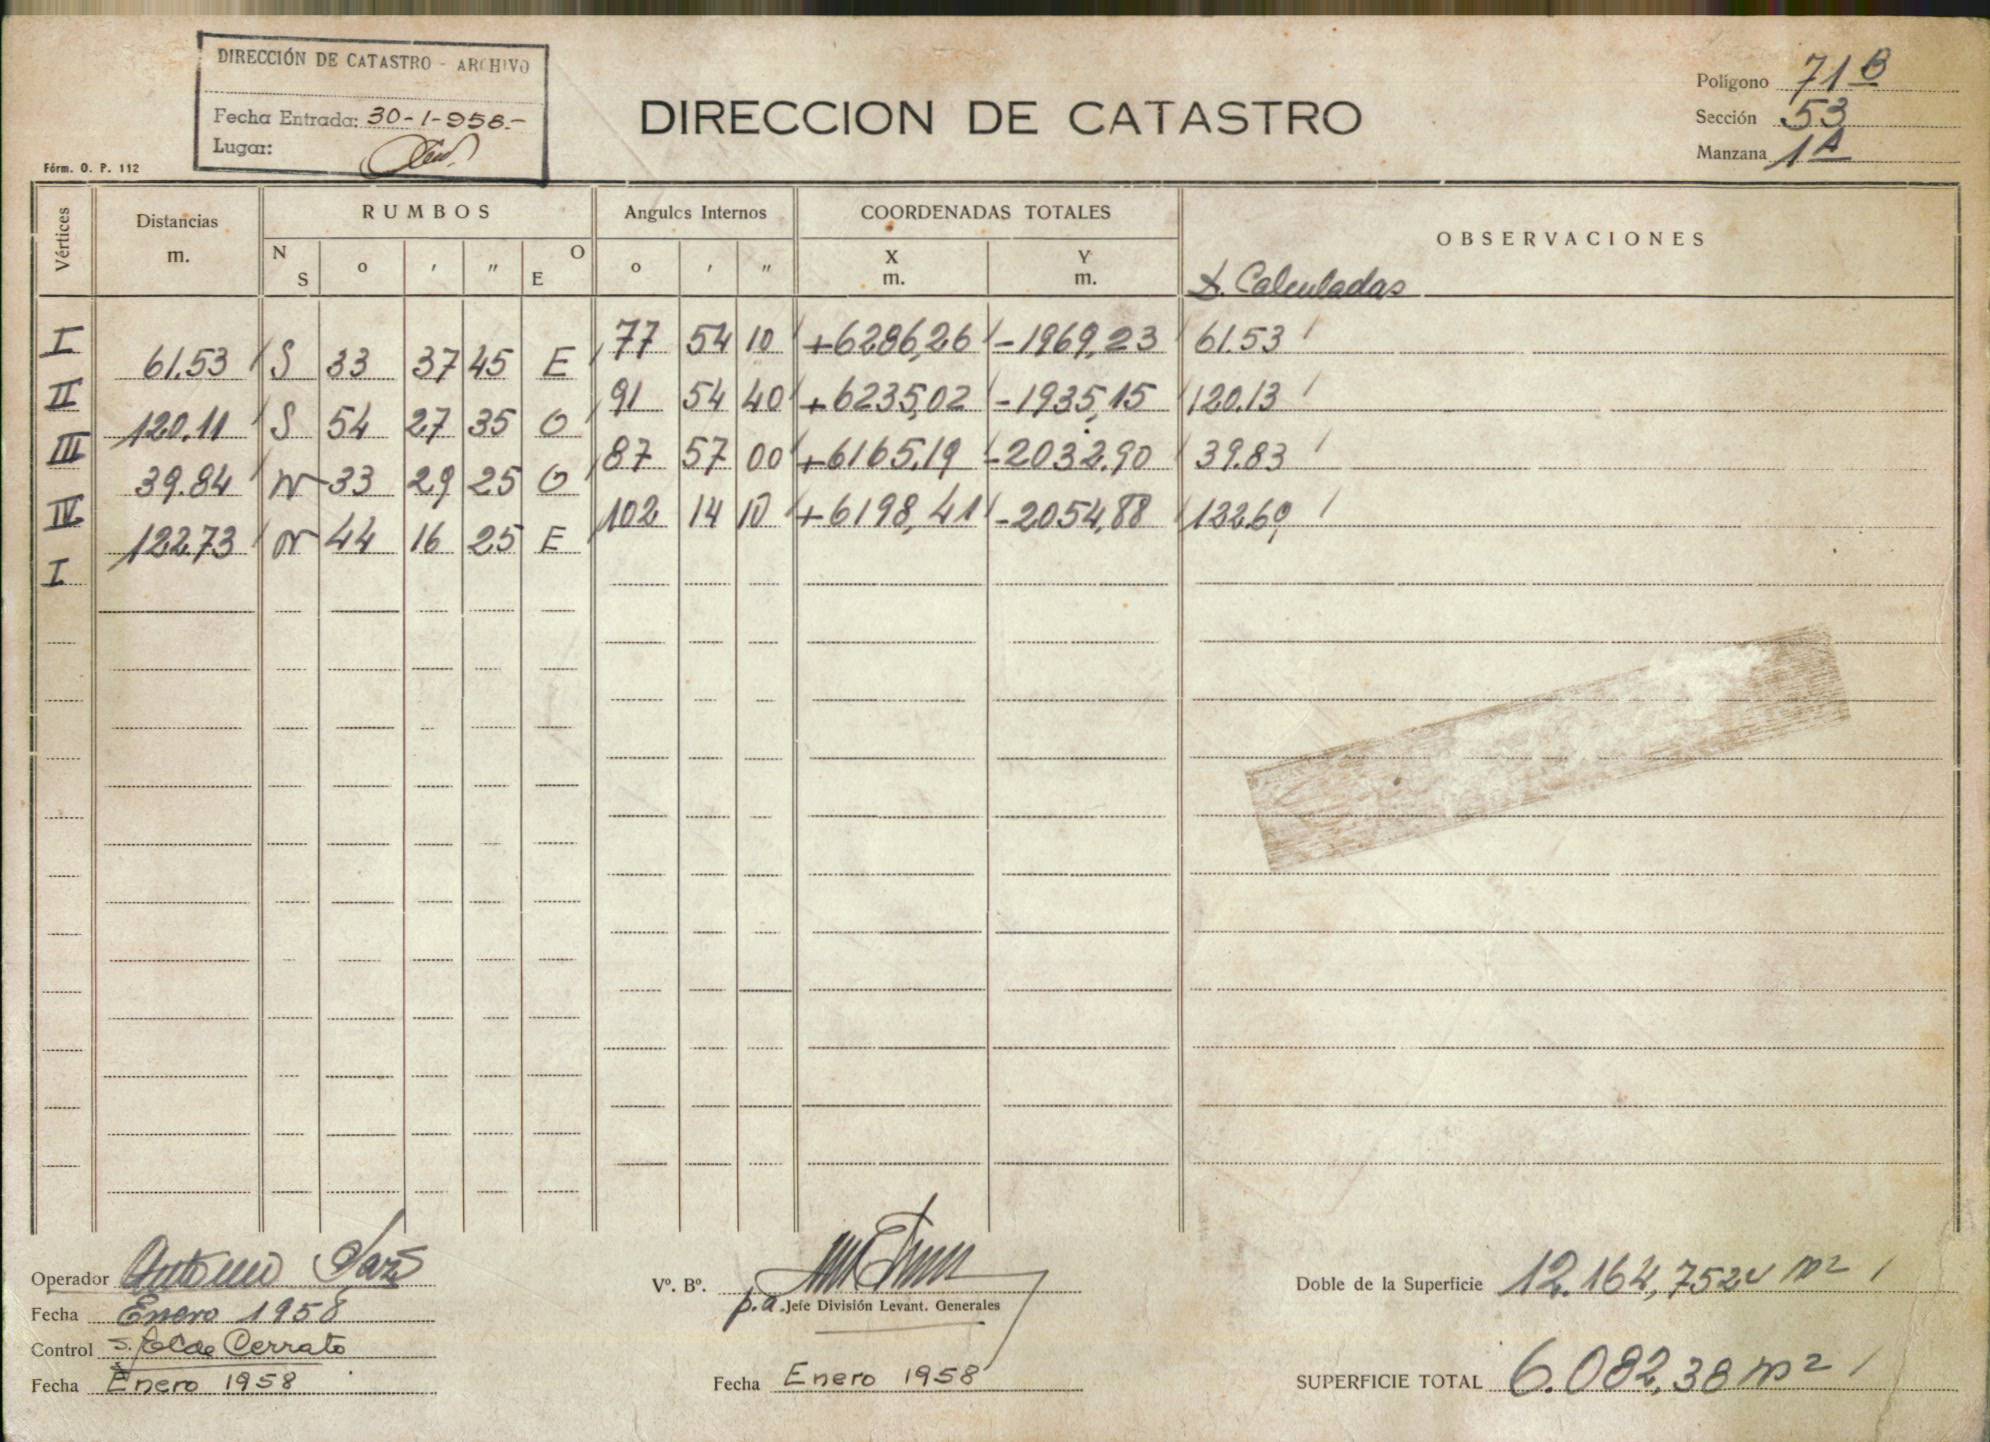 DIRECCIÓN DE CATASTRO - ARCHIVO
Fecha Entrada: 30-1-958.-
Lugar:
Fórm. O. P. 112
DIRECCION DE CATASTRO
Polígono 71 B
Sección 53
Manzana 1A
Vértices Distancias m. RUMBOS Angulos Internos COORDENADAS TOTALES OBSERVACIONES
N S o ' " O E o ' " X m. Y m. D. Calculadas
I 77 54 10 +6286,26 -1969,23 61.53
61.53 S 33 37 45 E
II 91 54 40 +6235,02 -1935,15 120.13
120.11 S 54 27 35 O
III 87 57 00 +6165.19 -2032.90 39.83
39.84 N 33 29 25 O
IV 102 14 10 +6198,41 -2054,88 122.69
122.73 N 44 16 25 E
I
Operador Antonio
Fecha Enero 1958
Control S. Cerrato
Fecha Enero 1958
Vº. Bº.
p.a. Jefe División Levant. Generales
Fecha Enero 1958
Doble de la Superficie 12.164,7524 m2
SUPERFICIE TOTAL 6.082,38 m2